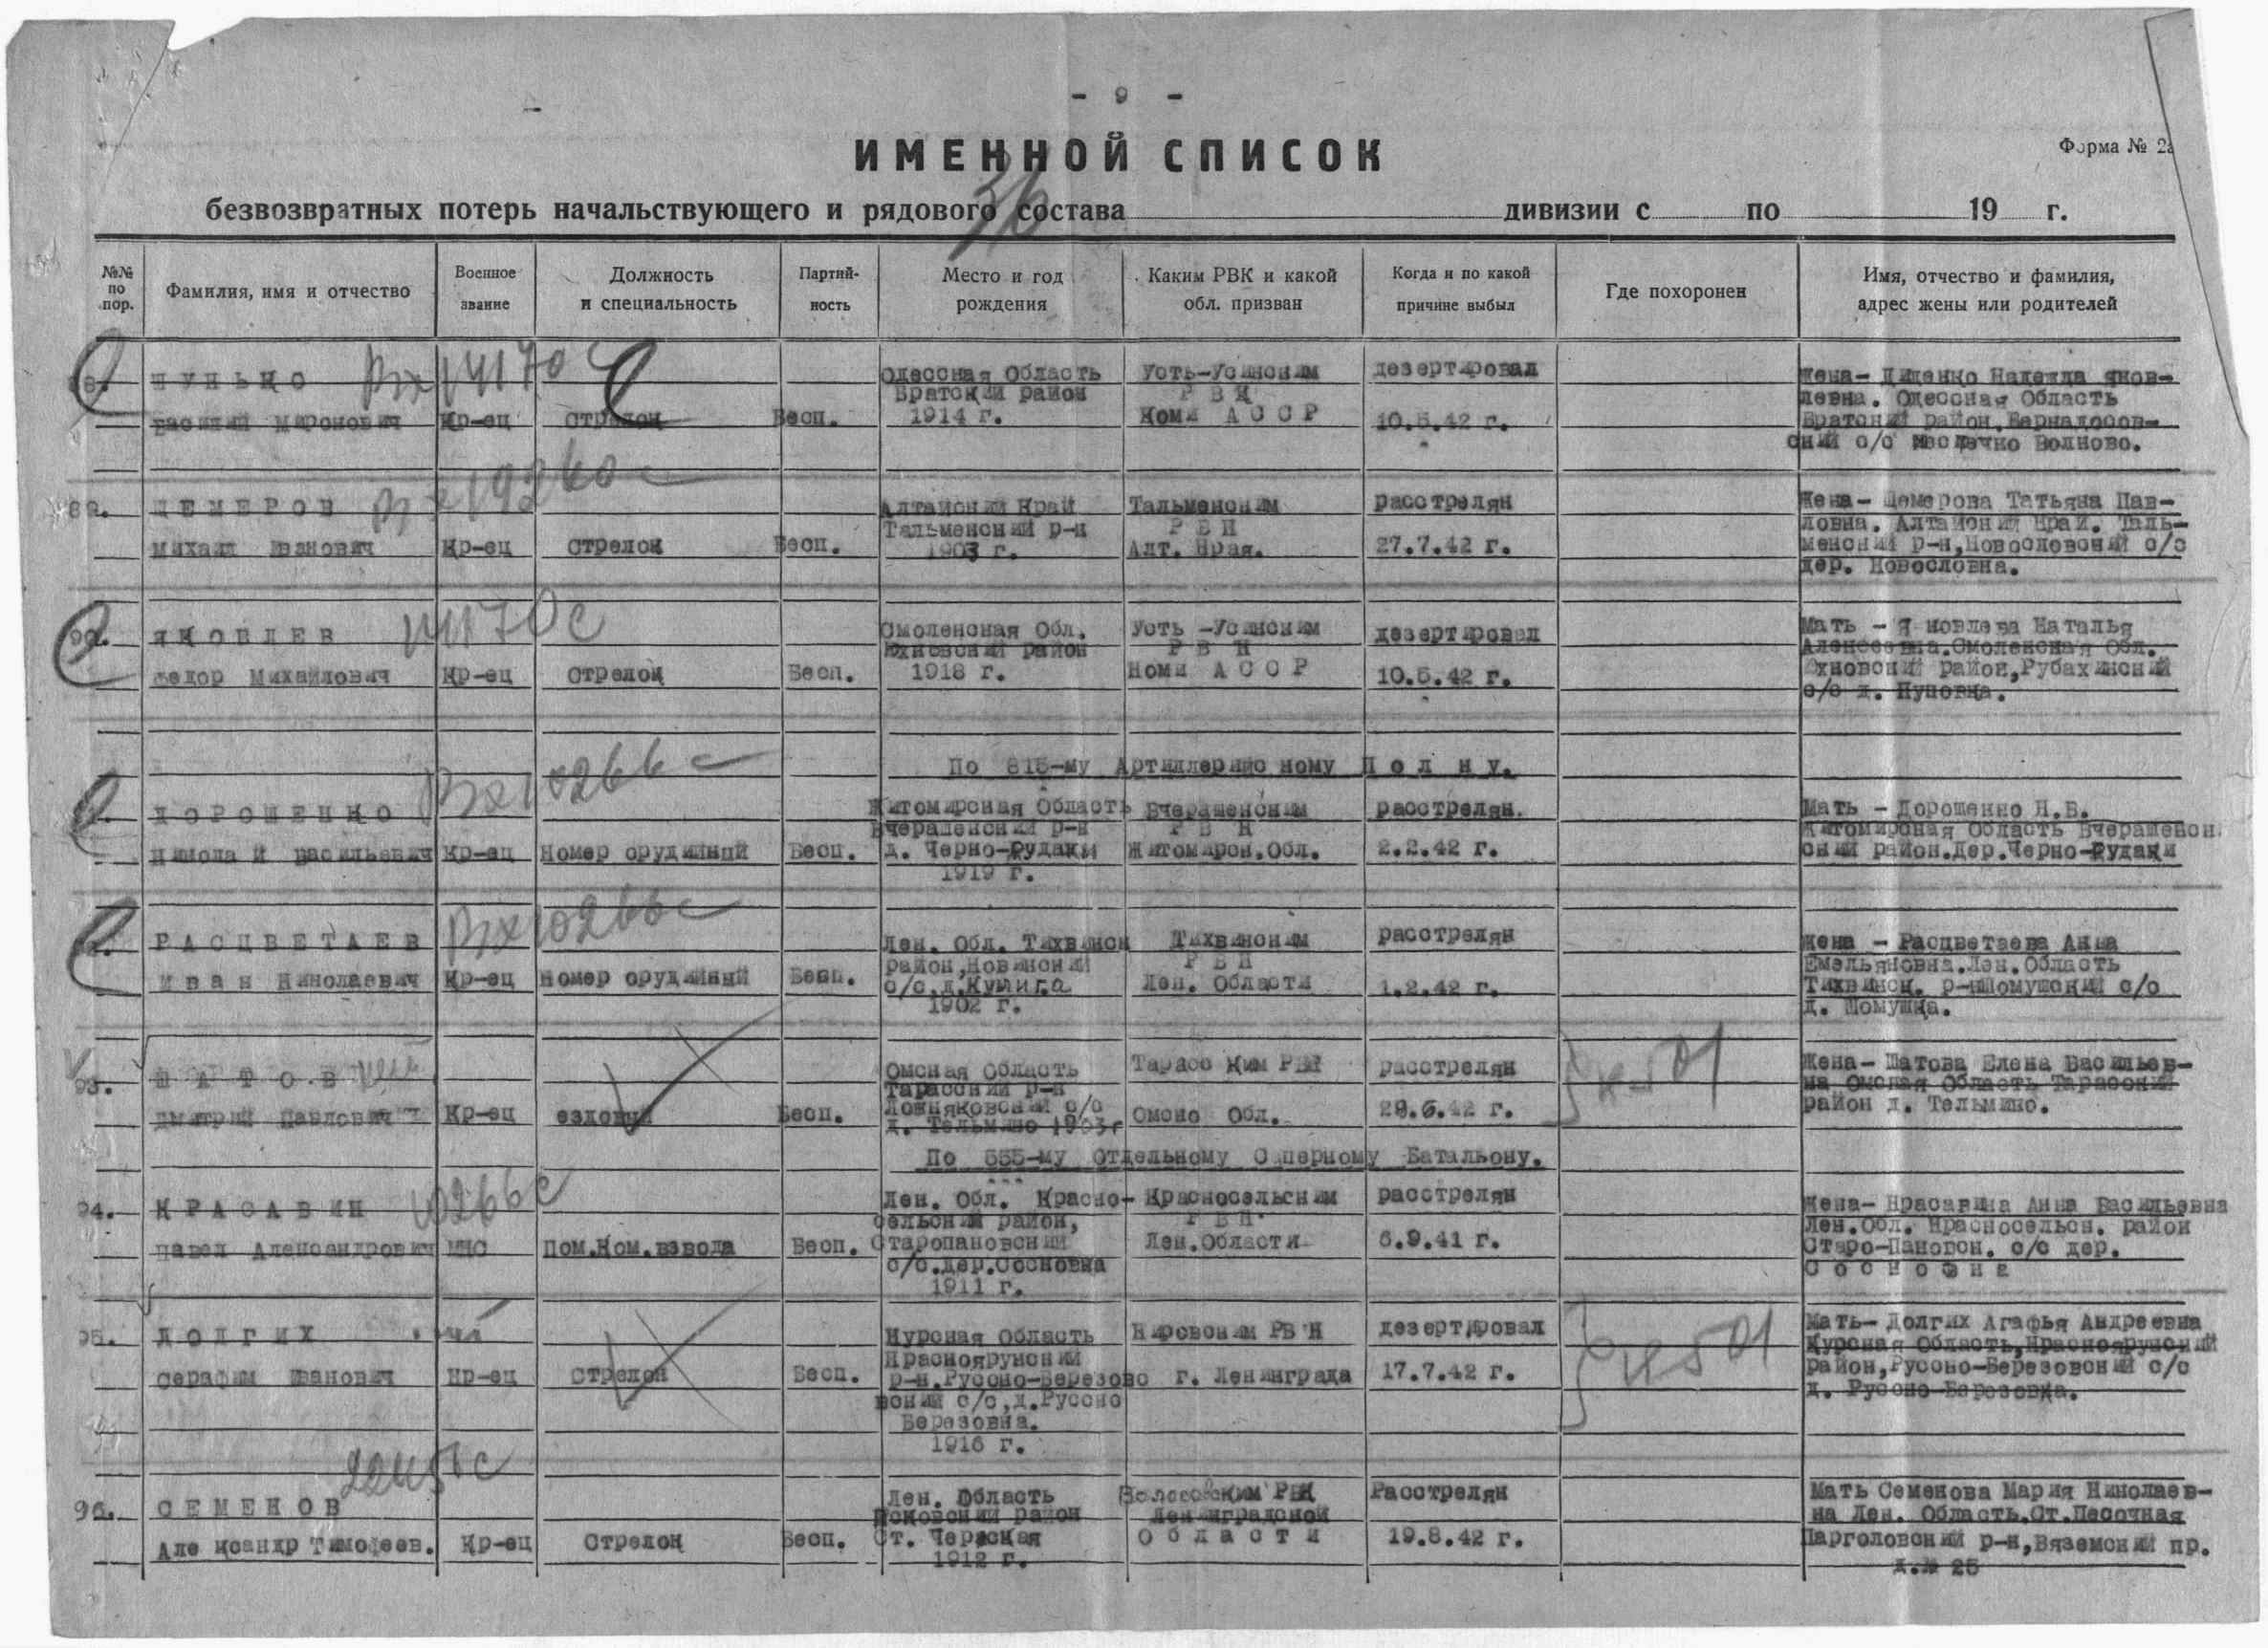 - 9 -
ИМЕННОЙ СПИСОК
Форма № 2а
безвозвратных потерь начальствующего и рядового состава дивизии с по 19 г.
№№ по пор.
Фамилия, имя и отчество
Военное звание
Должность и специальность
Партий-ность
Место и год рождения
Каким РВК и какой обл. призван
Когда и по какой причине выбыл
Где похоронен
Имя, отчество и фамилия, адрес жены или родителей
Вх 14170с
Василий Миронович
Кр-ец
стрелок
Бесп.
Одесская Область
Братский район
1914 г.
Усть-Усинским
Р В К
Коми А С С Р
дезертировал
10.5.42 г.
Жена- Диденко Надежда Яков-
левна. Одесская Область
Братский район,
ский с/с местечко Волково.
89.
Вх 19240с
Михаил Иванович
Кр-ец
стрелок
Бесп.
Алтайский Край
Тальменский р-н
1903 г.
Тальменским
Р В К
Алт. Края.
расстрелян
27.7.42 г.
Жена- Шемерова Татьяна Пав-
ловна. Алтайский Край. Таль-
менский р-н,
дер.
90.
14170с
Я К О В Л Е В
Федор Михайлович
Кр-ец
стрелок
Бесп.
Смоленская Обл.
Юхновский район
1918 г.
Усть-Усинским
Р В К
Коми А С С Р
дезертировал
10.5.42 г.
Мать - Яковлева Наталья
Алексеевна.Смоленская Обл.
Юхновский район,Рубахинский
с/с д.
По 815-му Артиллерийскому П о л к у.
Вх 10266с
Д О Р О Ш Е Н К О
Николай Васильевич
Кр-ец
Номер орудийный
Бесп.
Житомирская Область
Вчерашенский р-н
д. Черно-Рудаки
1919 г.
Вчерашенским
Р В К
Житомирск.Обл.
расстрелян.
2.2.42 г.
Мать - Дорошенко Н.В.
Житомирская Область Вчерашенск.
ский район.Дер.Черно-Рудаки
Вх 10266с
Р А С Ц В Е Т А Е В
Иван Николаевич
Кр-ец
Номер орудийный
Бесп.
Лен. Обл. Тихвинск
район,Новинский
с/с,д.
1902 г.
Тихвинским
Р В К
Лен. Области
расстрелян
1.2.42 г.
Жена - Расцветаева Анна
Емельяновна.Лен.Область
Тихвинск. р-нШомушский с/с
д. Шомушка.
93.
Ш А Т О В
Дмитрий Павлович
Кр-ец
ездовый
Бесп.
Омская Область
Тарасский р-н
Ложняковский с/с
д. Тельмино 1903г
Тарасским РВК
Омско Обл.
расстрелян
29.6.42 г.
Жена- Шатова Елена Васильев-
на Омская Область Тарасский
район д. Тельмино.
По 555-му Отдельному Саперному Батальону.
94.
10266с
К Р А С А В И Н
Павел Александрович
МКС
Пом.Ком.взвода
Бесп.
Лен. Обл. Красно-
сельский район,
Старопановский
с/с.дер.Сосновка
1911 г.
Красносельским
Р В К
Лен.Области
расстрелян
6.9.41 г.
Жена- Красавина Анна Васильевна
Лен.Обл. Красносельск. район
Старо-Пановск. с/с дер.
С о с н о в к а
95.
Д О Л Г И Х
Серафим Иванович
Кр-ец
Стрелок
Бесп.
Курская Область
Краснояружский
р-н.Русско-Березово
вский с/с,д.Русско
Березовка.
1916 г.
Кировским РВК
г. Ленинграда
дезертировал
17.7.42 г.
Мать- Долгих Агафья Андреевна
Курская Область,Краснояружский
район,Русско-Березовский с/с
д. Русско-Березовка.
96.
С Е М Е Н О В
Александр Тимофеев.
Кр-ец
Стрелок
Бесп.
Лен. Область
Псковский район
Ст. Черская
1912 г.
РВК
Ленинградской
О б л а с т и
Расстрелян
19.8.42 г.
Мать Семенова Мария Николаев-
на Лен. Область,Ст.Песочная
Парголовский р-н,Вяземский пр.
д.№ 25